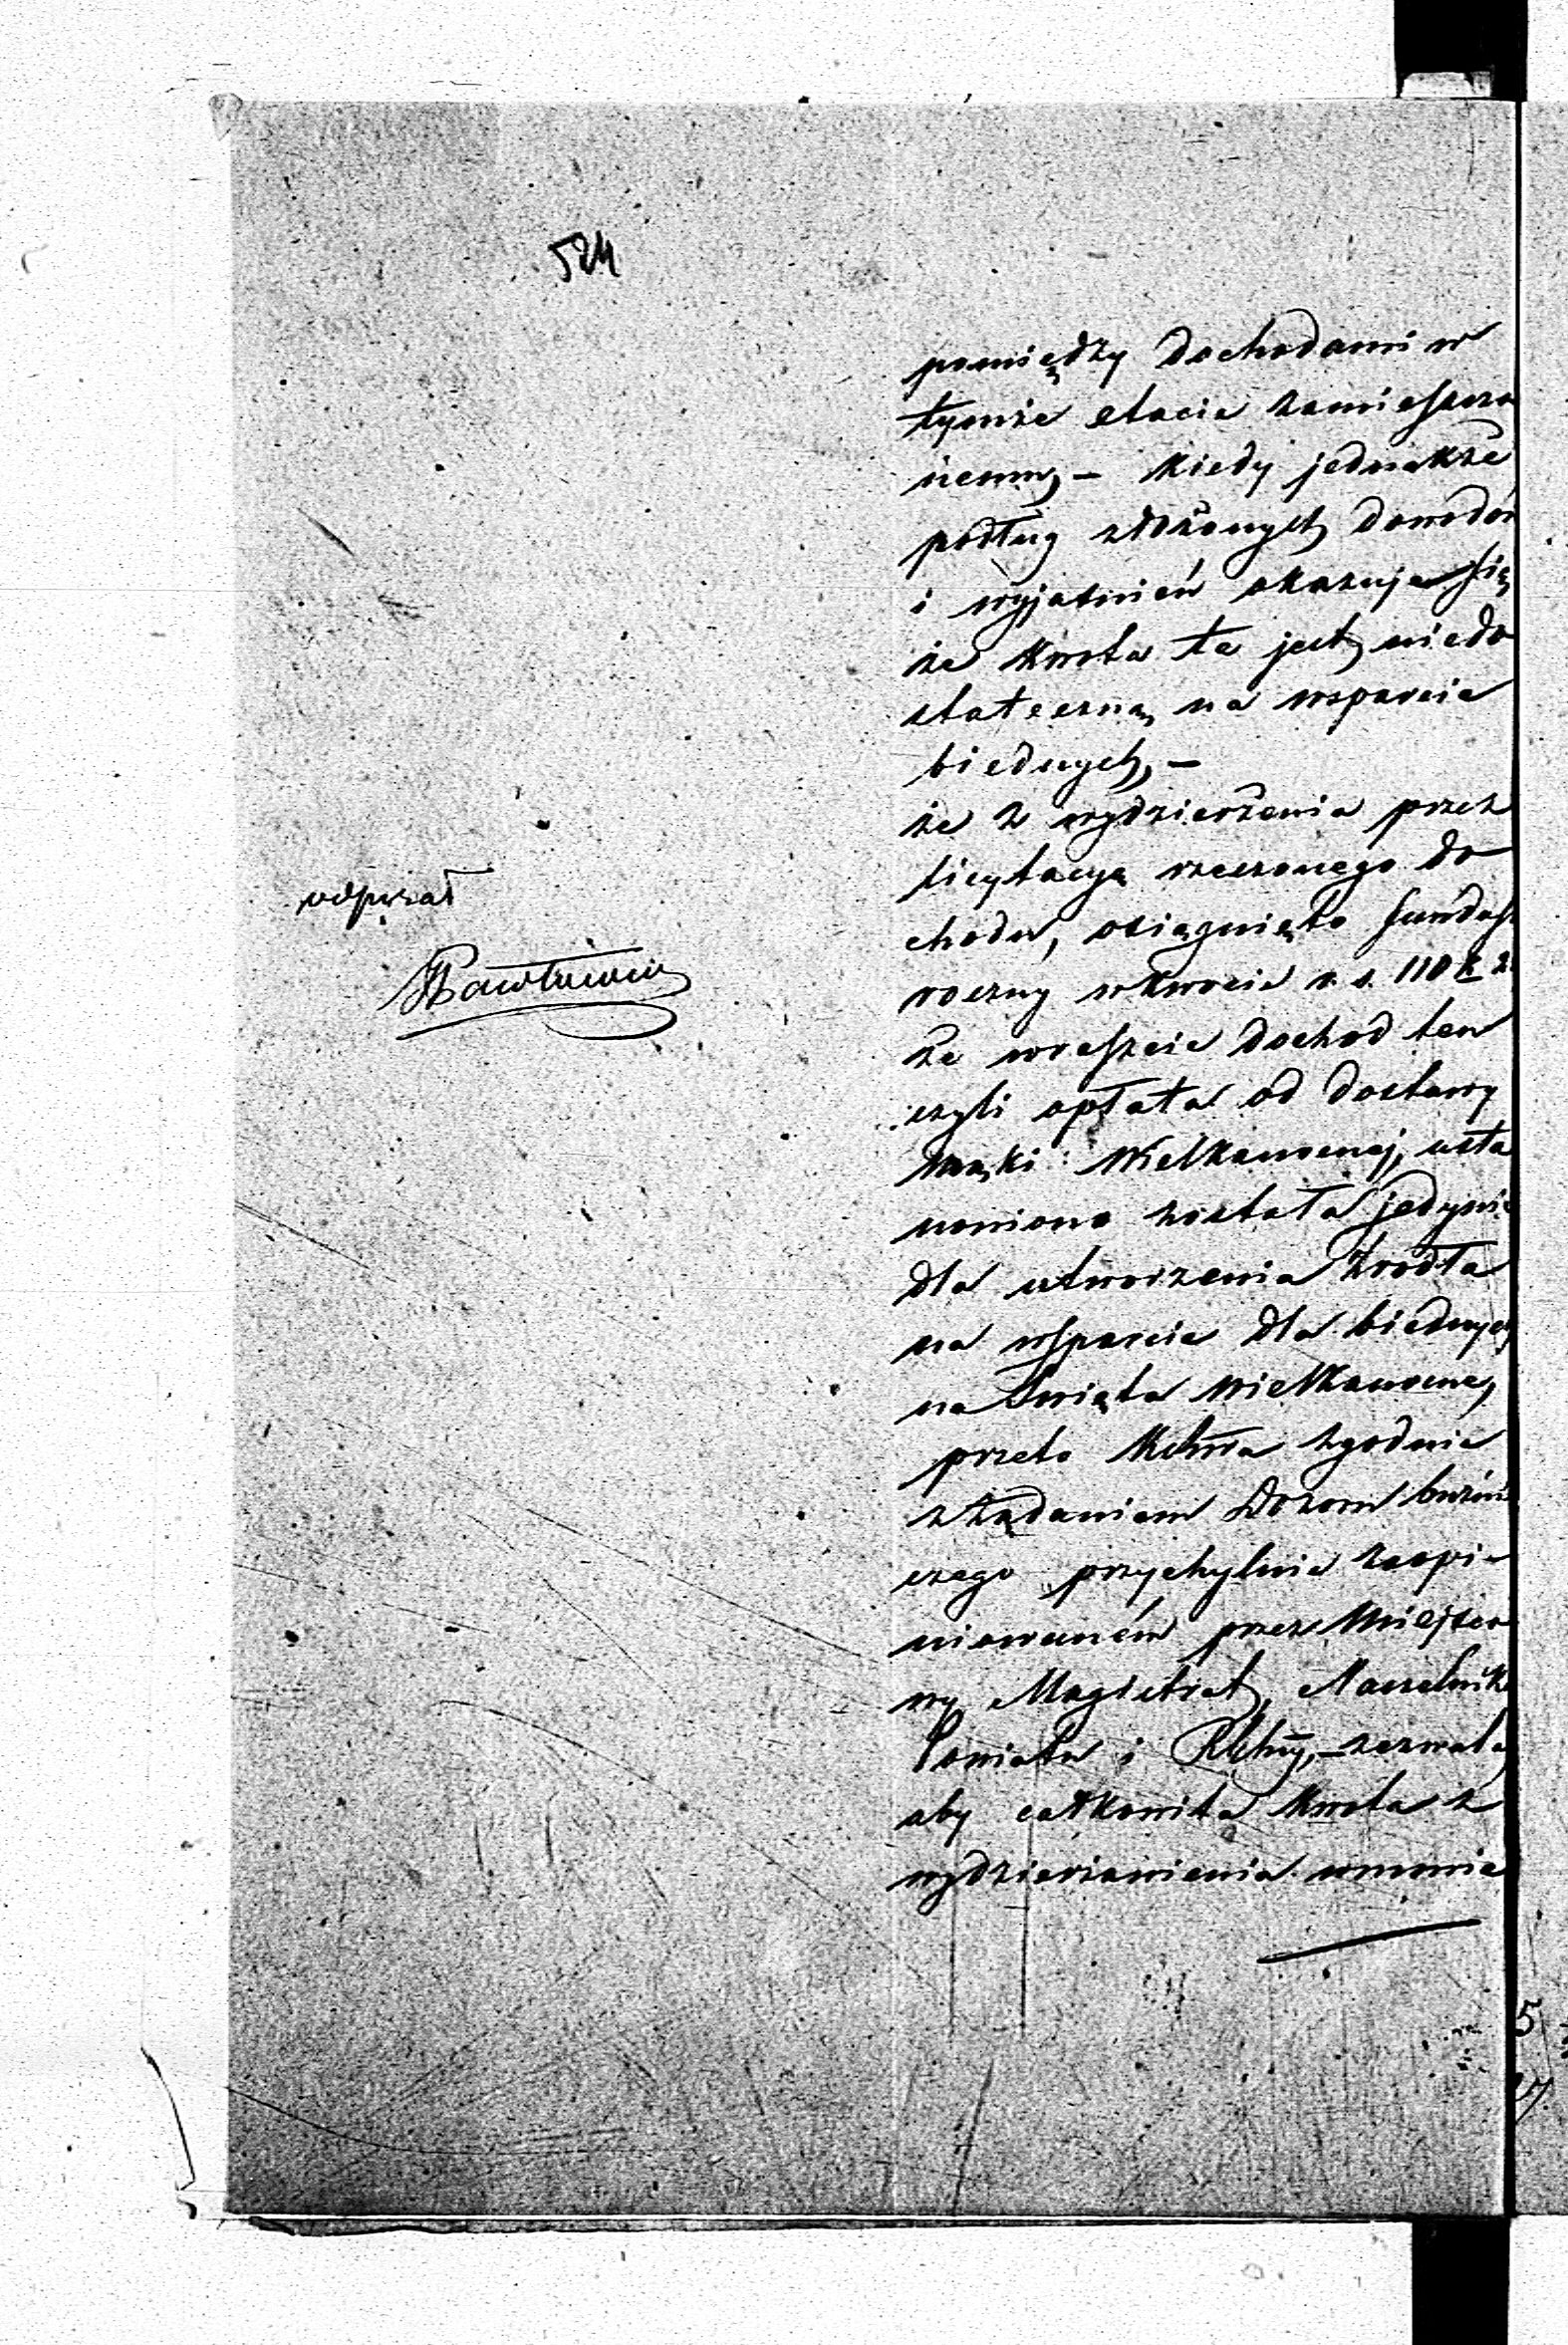 524
pomiędzy dochodami w
tymże etacie zamieszczo
nemy, – kiedy jednakże
podług złożonych dowodów
i wyjaśnień okazuje się
że kwota ta jest niedo
stateczną na wsparcie
biednych, –
że z wydzierżenia przez
licytacyę rzeczonego do
chodu, osiągnięto fundusz
roczny w kwocie r. s. 110 k
że wreszcie dochod ten
czyli opłata od dostawy
mąki Wielkanocnej, usta
nowiona została jedynie
dla utworzenia źrodła
na wsparcie dla biednych
na Święta Wielkanocne,
przeto zgodnie
z żądaniem Dozoru bużni
czego przychylnie zaopi
niowaném przez Miejsco
wy Magistrat, Naczelnika
Powiatu i – zezwala,
aby całkowita kwota z
wydzierżawienia wmowie
odpisał
5